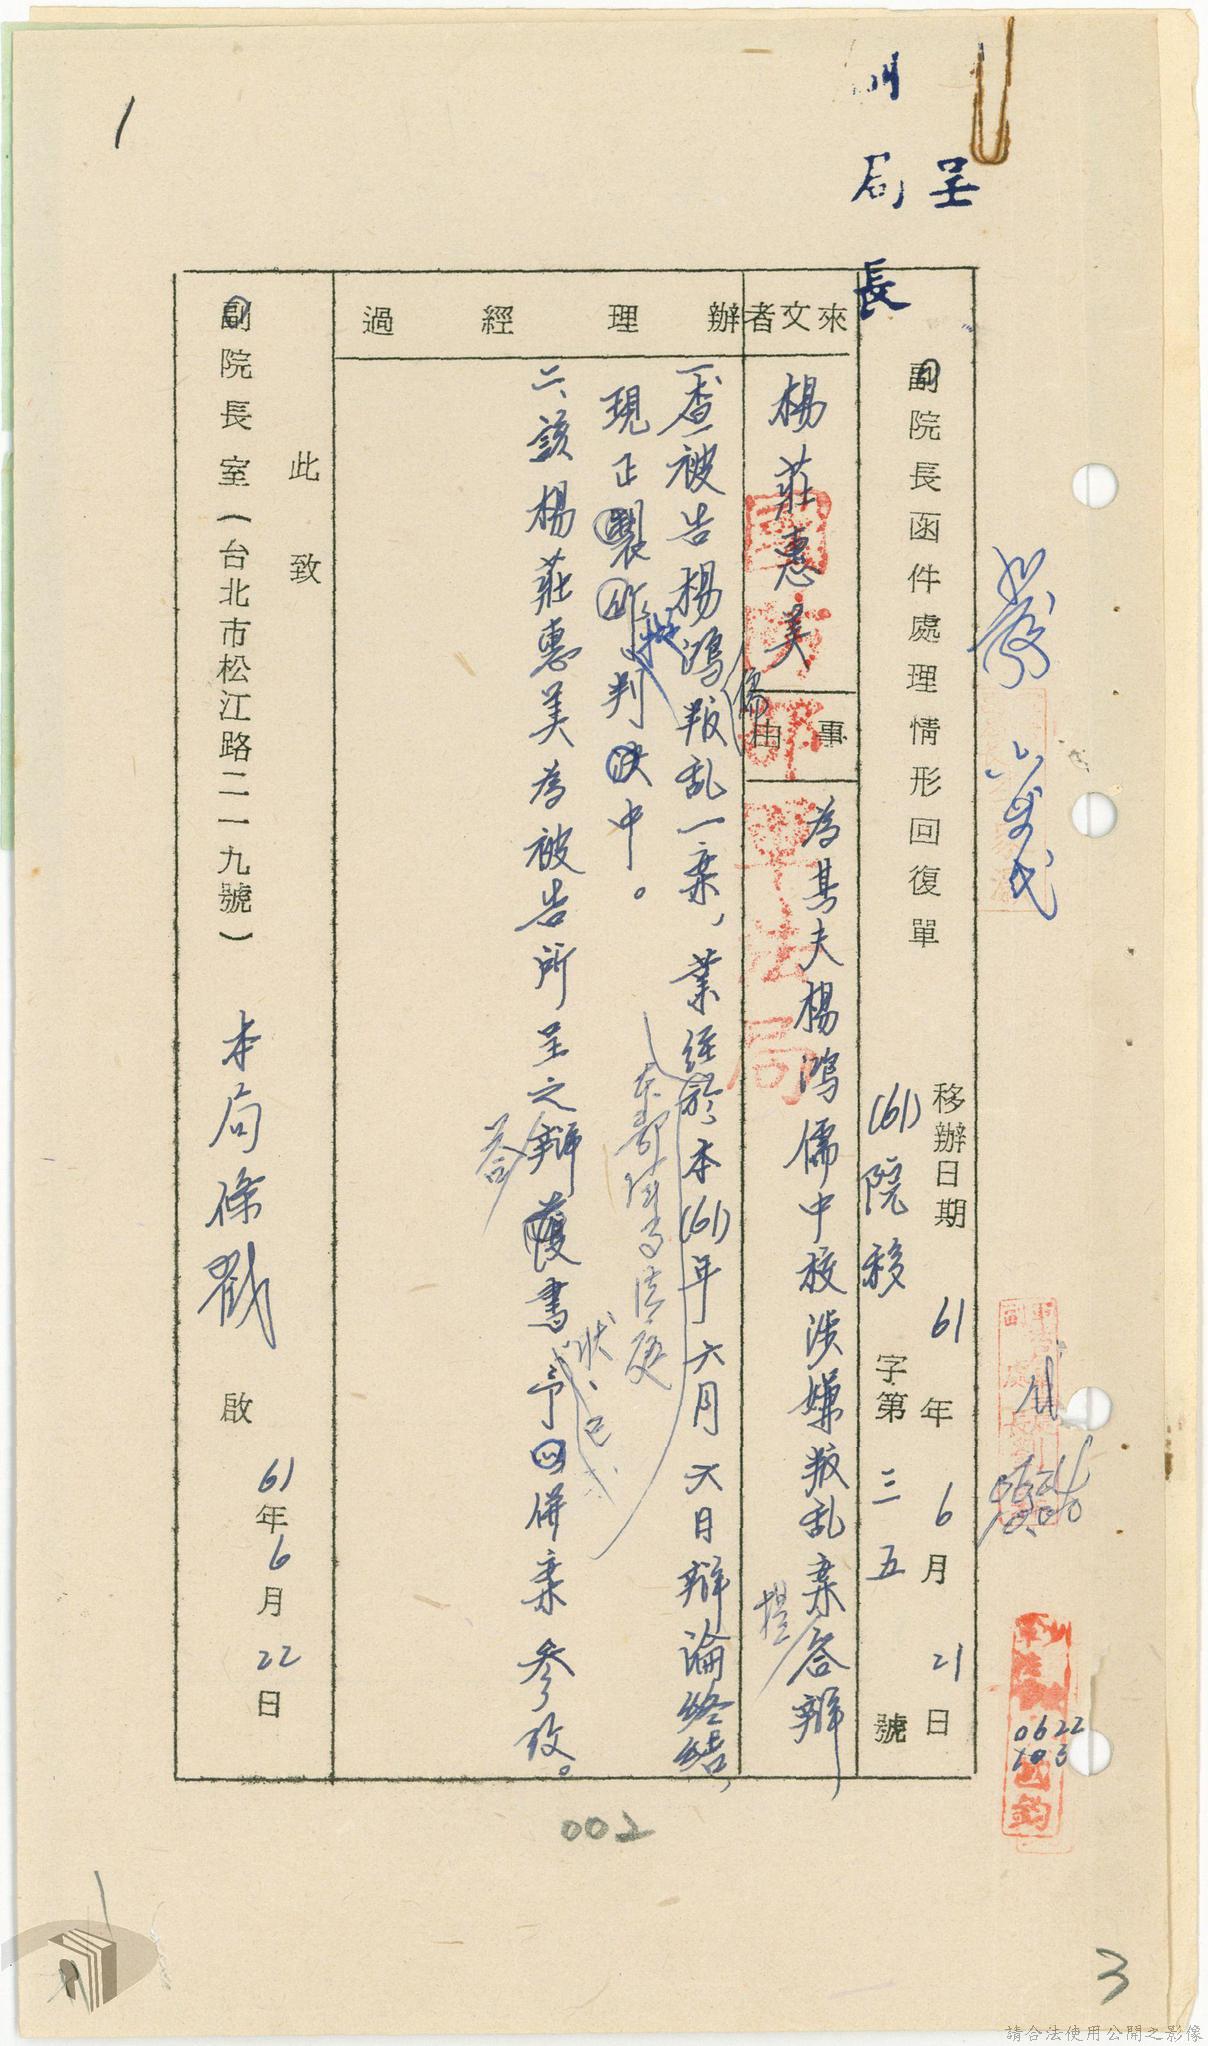 呈
副局長
副院長函件處理情形回復單
移辦日期 61年6月21日
(61)院移字第三五號
來文者
楊莊惠美
事由
為其夫楊鴻儒中校涉嫌叛乱案答辯
提
國防部軍法局
辦理經過
一、查被告楊鴻叛乱一案,業經於本(61)年六月六日辯論終結,
儒
現正製作判決中。
擬
二、該楊莊惠美為被告所呈之辯護書,予以併案參攷。
答
狀、已
此致
副院長室(台北市松江路二一九號)
本局條戳 啟
61年6月22日
0622
1
002
3
請合法使用公開之影像